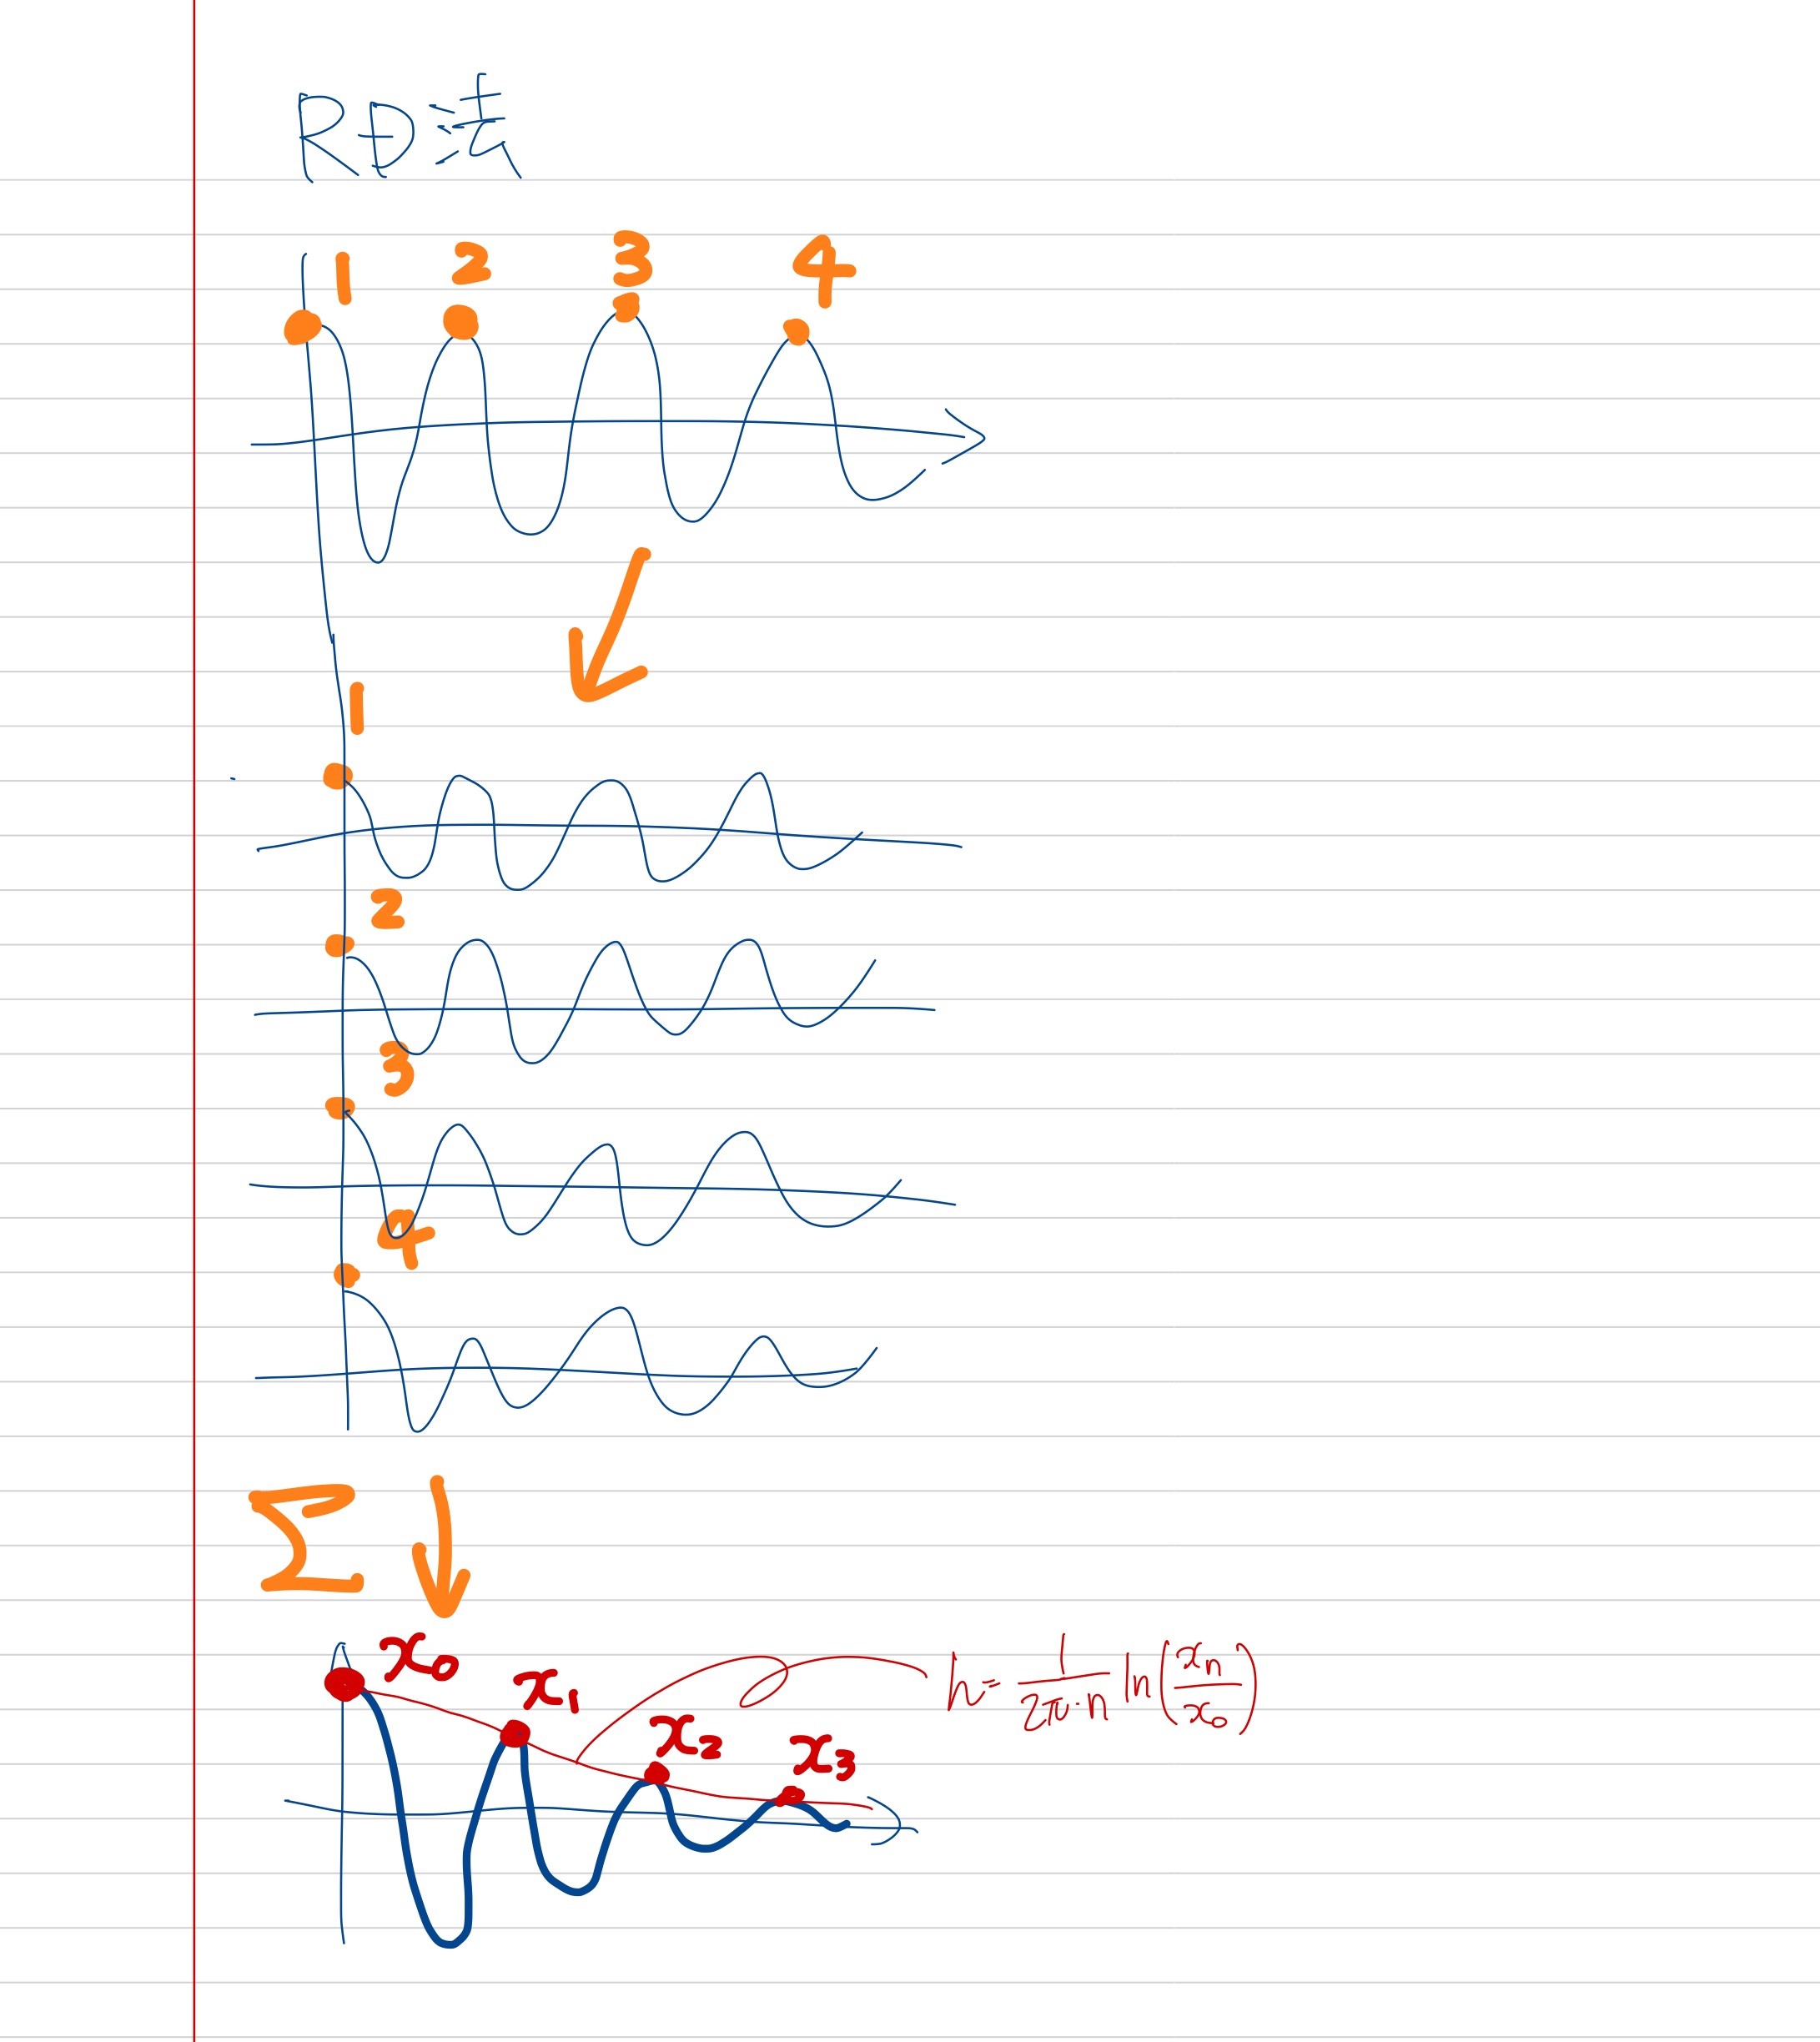 RD法
1 2 3 4
1
2
3
4
Σ
x₀ x₁ x₂ x₃
h = 1/(2π·n) ln(xₙ/x₀)